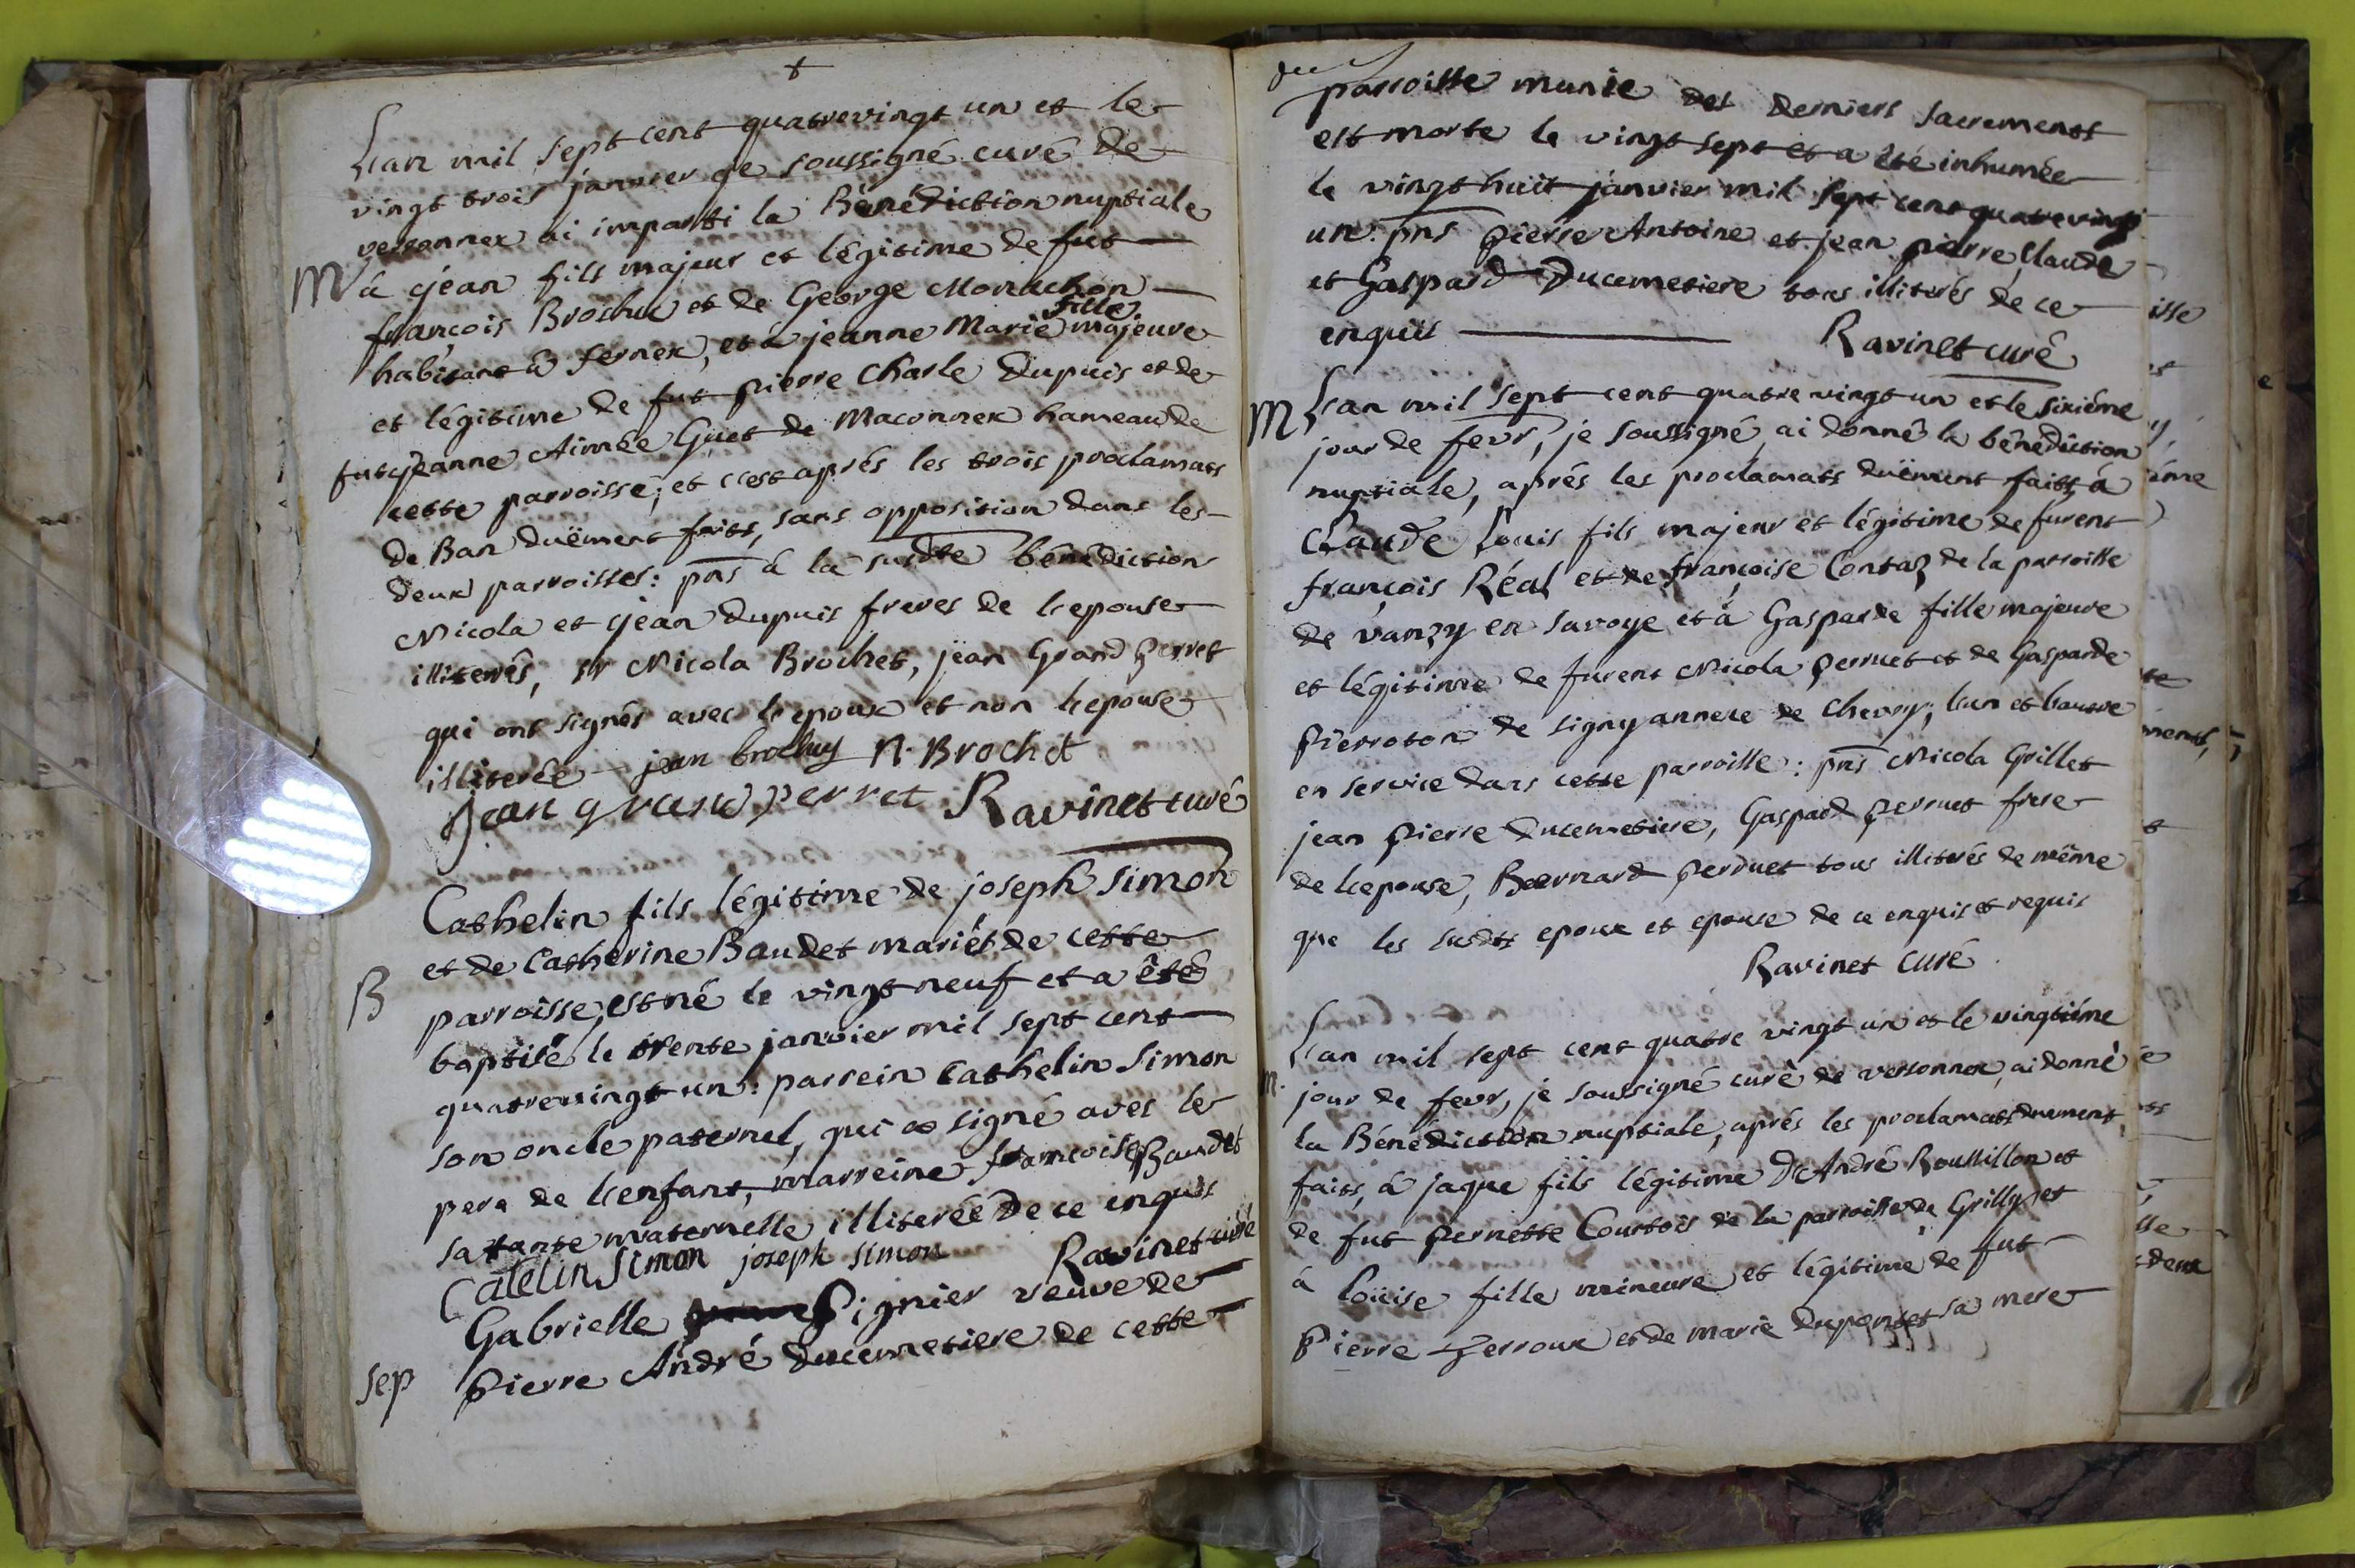 +
Lan mil sept cent quatrevingt un et le
vingt trois janvier je soussigné curé de
versonnex ai imparti la Bénédiction nuptiale
M à jean fils majeur et légitime de fut
françois Brochu et de George Monachon
habitant à fernex, et à jeanne Marie fille majeure
et légitime de fut pierre Charle Dupuis et de
fut jeanne Aimée Guet de Maconnex hameau de
cette parroisse; et c'est aprés les trois proclamats
de Ban duëment faits, sans opposition dans les
deux parroisses: pns à la susdte bénédiction
Nicola et jean dupuis freres de lepouse
illiterés, sr Nicola Brochet, jean Grand perret
qui ont signés avec lepoux et non lepouse
illiterée jean brochuy N. Brochet
jean grand perret Ravinet curé
Cathelin fils légitime de joseph Simon
et de Catherine Baudet mariés de cette
B parroisse, est né le vingt neuf et a êté
baptisé le trente janvier mil sept cent
quatrevingt un: parrein Cathelin Simon
son oncle paternel, qui a signé avec le
pere de l'enfant, marreine francoise Baudet
sa tante maternelle illiterée de ce enquis
Catelin Simon joseph simon Ravinet curé
Gabrielle Pignier veuve de
sep Pierre André ducemetiere de cette
parroisse munie des derniers sacrements
est morte le vingt sept et a êté inhumée
le vingt huit janvier mil sept cent quatrevingt
un. pns pierre Antoine et jean pierre, Claude
et Gaspard Ducemetiere tous illiterés de ce
enquis Ravinet curé
M Lan mil sept cent quatre vingt un et le sixiéme
jour de fevr, je soussigné ai donné la bénédiction
nuptiale, aprés les proclamats duëment faits, à
Claude Louis fils majeur et légitime de furent
françois Réal et de françoise Contaz de la parroisse
de vanzy en savoye et à Gasparde fille majeure
et légitime de furent Nicola perruet et de Gasparde
pierroton de signy annexe de Chevry; lun et lautre
en service dans cette parroisse: pns Nicola Grillet
jean pierre ducemetiere, Gaspard perruet frere
de lepouse, Bernard perruet tous illiterés de même
que les susdts epoux et epouse de ce enquis et requis
Ravinet curé
Lan mil sept cent quatre vingt un et le vingtiéme
m. jour de fevr, je soussigné curé de versonnex, ai donné
la Bénédiction nuptiale, aprés les proclamats dument
faits, à jaque fils légitime D'André Roussillon et
de fut pernette Courtois de la parroisse de Grilly et
à Loüise fille mineure et légitime de fut
Pierre perroux et de marie duponset sa mere